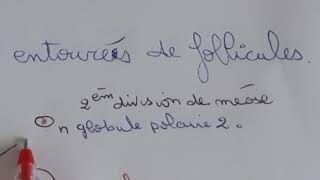 entourées de follicules.
2 èm division de méose
n globule polaire 2.